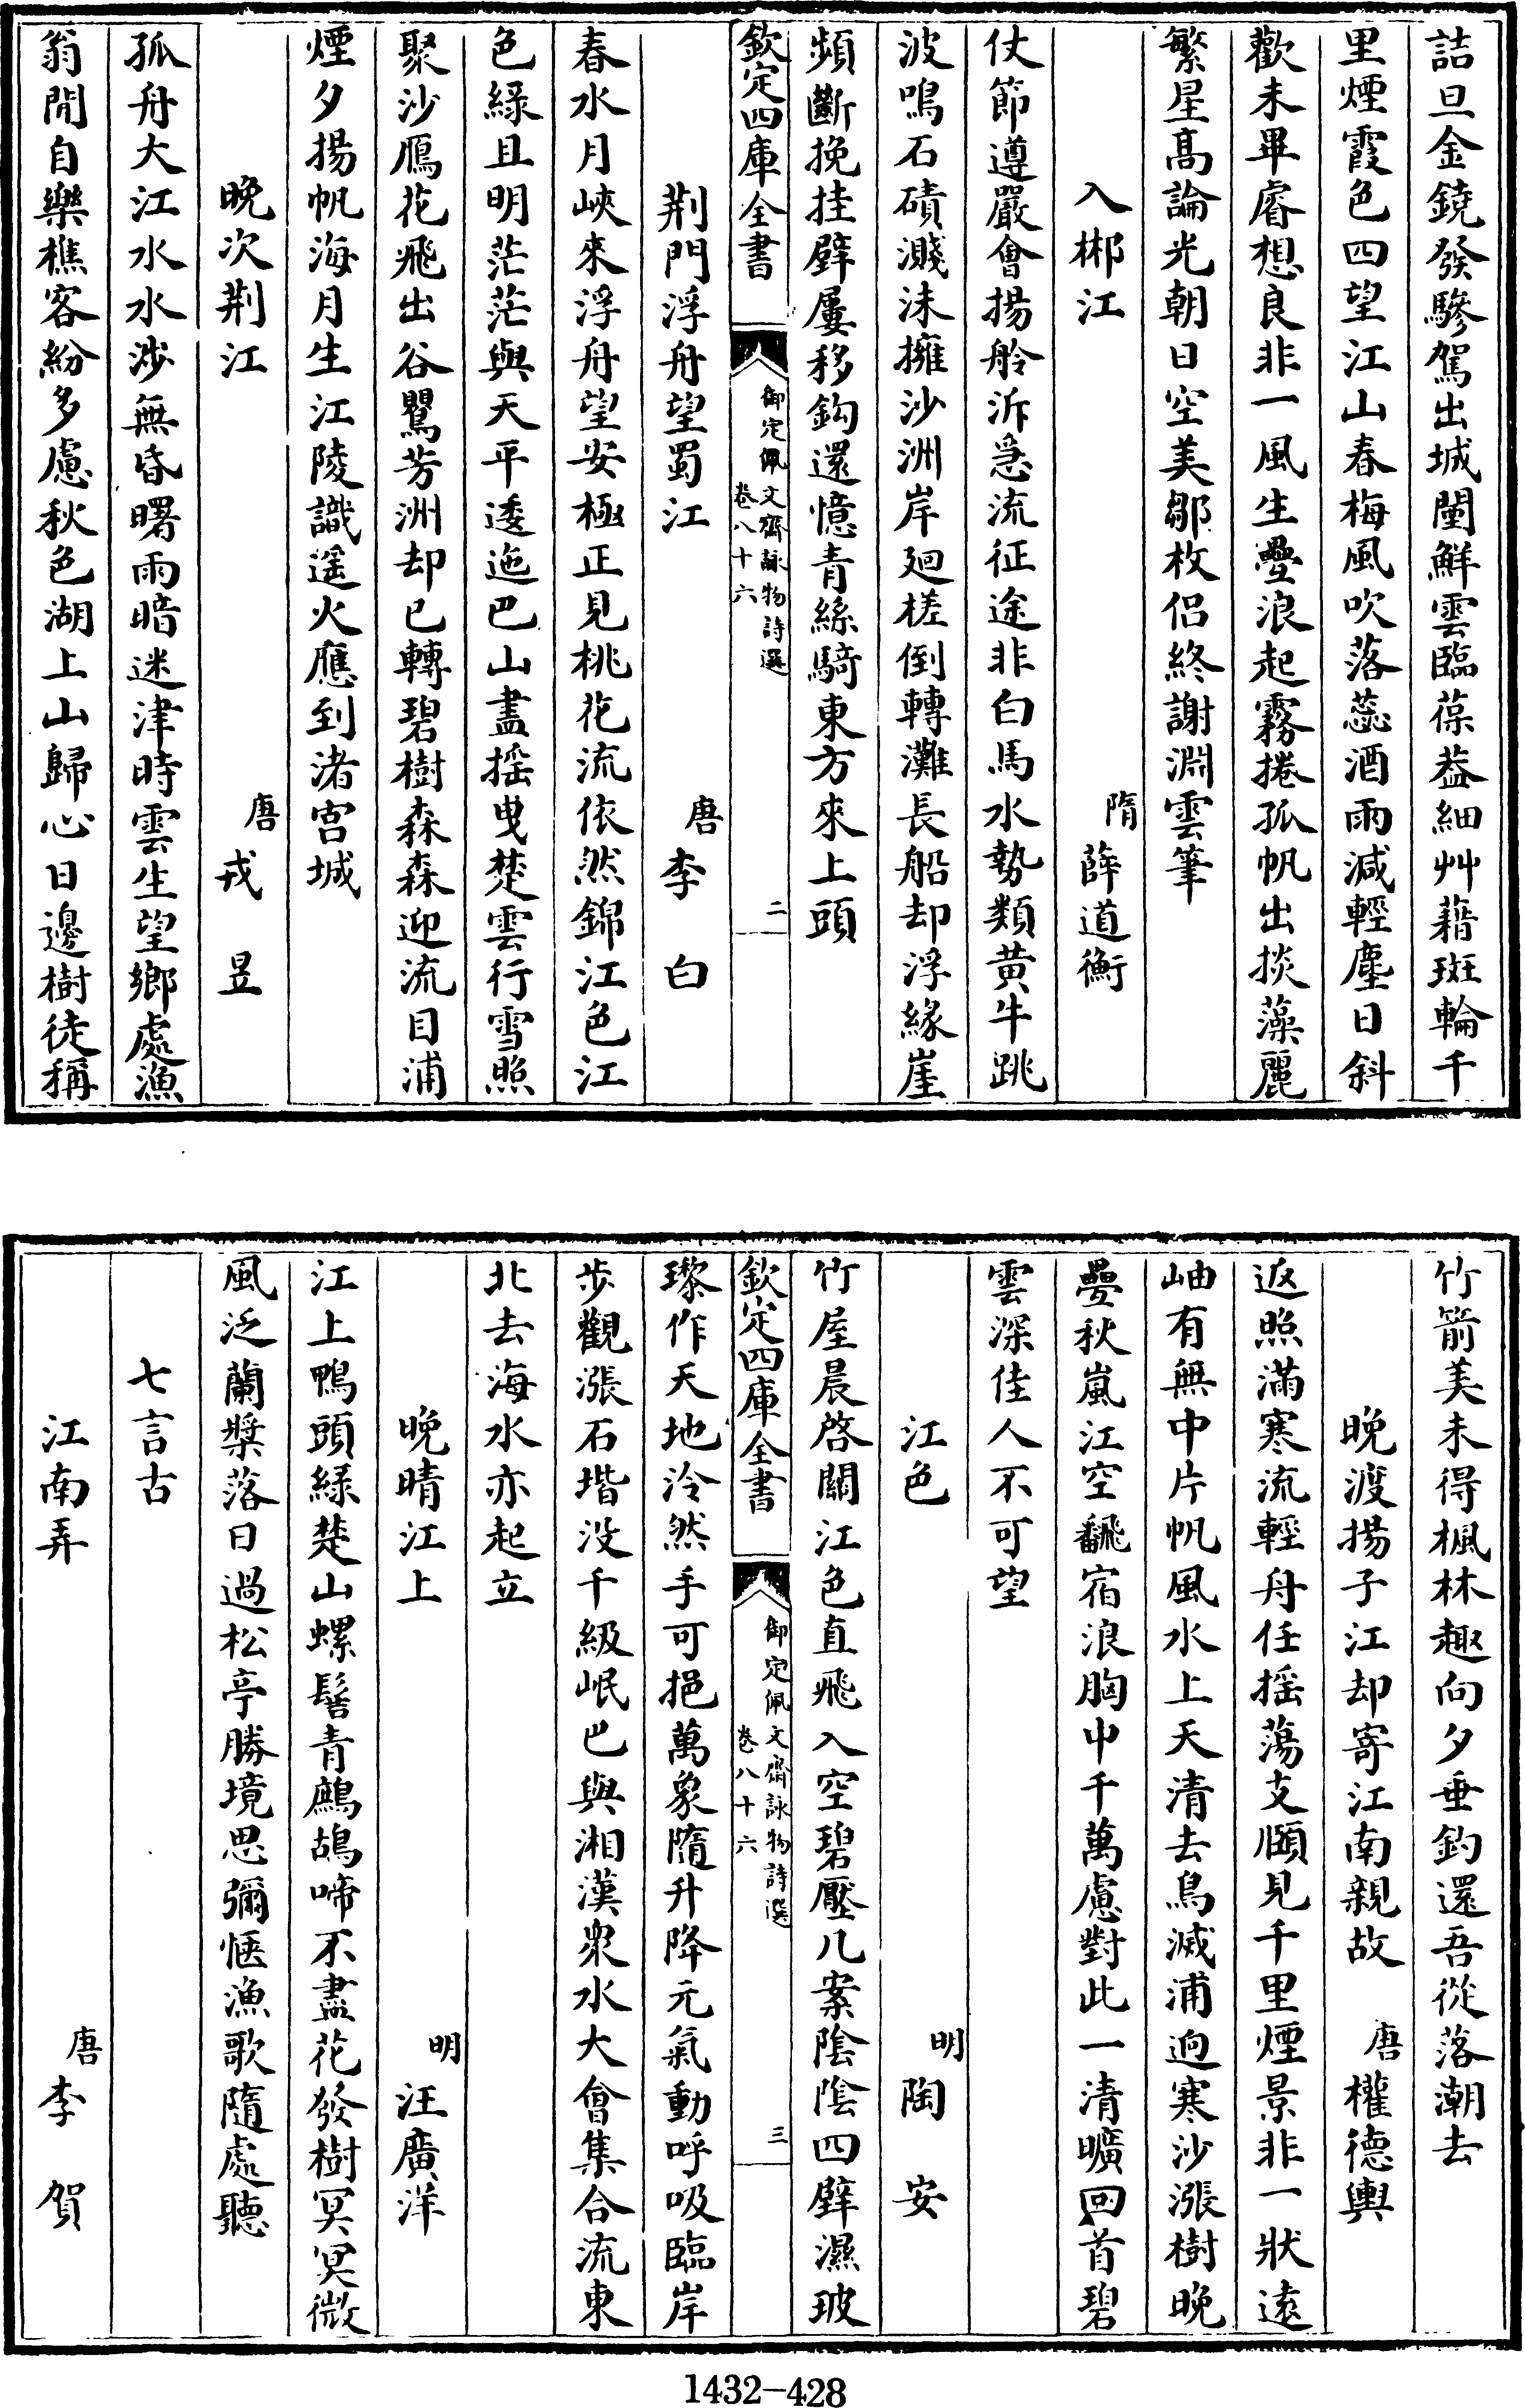 詰旦金鐃發驂駕出城闉鮮雲臨葆葢細艸藉斑輪千
里煙霞色四望江山春梅風吹落蕊酒雨減輕塵日斜
歡未畢睿想良非一風生疊浪起霧捲孤帆出掞藻麗
繁星髙論光朝日空美鄒枚侣終謝淵雲筆
入郴江　隋薛道衡
仗節遵嚴會揚舲泝急流征途非白馬水勢類黄牛跳
波鳴石磧濺沫擁沙洲岸廻槎倒轉灘長船却浮緣崖
頻斷挽挂壁屢移鈎還憶青絲騎東方來上頭
欽定四庫全書　御定佩文齋詠物詩選 卷八十六　二
荆門浮舟望蜀江　唐李白
春水月峽來浮舟望安極正見桃花流依然錦江色江
色緑且明茫茫與天平逶迤巴山盡摇曳楚雲行雪照
聚沙鴈花飛出谷鸎芳洲却已轉碧樹森森迎流目浦
煙夕揚帆海月生江陵識遥火應到渚宫城
晚次荆江　唐戎昱
孤舟大江水水渉無昏曙雨暗迷津時雲生望鄉處漁
翁閒自樂樵客紛多慮秋色湖上山歸心日邊樹徒稱
竹箭美未得楓林趣向夕垂釣還吾從落潮去
晚渡揚子江却寄江南親故　唐權德輿
返照滿寒流輕舟任摇蕩支頤見千里煙景非一狀遠
岫有無中片帆風水上天清去鳥滅浦迥寒沙漲樹晚
疊秋嵐江空飜宿浪胸中千萬慮對此一清曠回首碧
雲深佳人不可望
江色　明陶安
竹屋晨啓關江色直飛入空碧壓几案陰陰四壁濕玻
欽定四庫全書　御定佩文齋詠物詩選 卷八十六　三
瓈作天地泠然手可挹萬象隨升降元氣動呼吸臨岸
歩觀漲石堦没千級岷巴與湘漢衆水大會集合流東
北去海水亦起立
晚晴江上　明汪廣洋
江上鴨頭緑楚山螺髻青鷓鴣啼不盡花發樹冥冥微
風泛蘭槳落日過松亭勝境思彌愜漁歌隨處聽
七言古
江南弄　唐李賀
1432—428